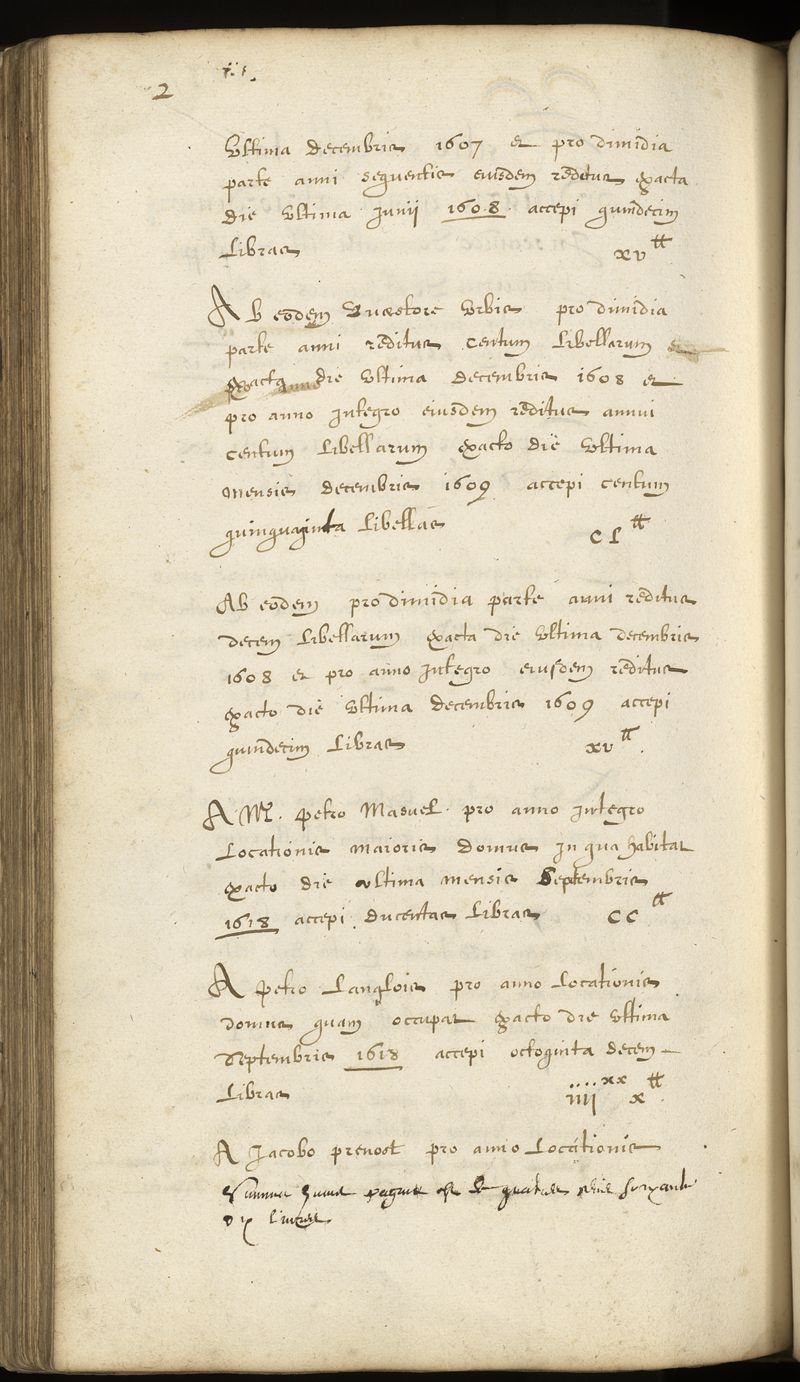 2
Ultima decembris 1607 et pro dimidia
parte anni sequentis eiusdem reditus exacta
die ultima Junii 1608 accepi quindecim
libras xv ₶
Ab eodem quaestore urbis pro dimidia
parte anni reditus centum libellarum
exacta die ultima decembris 1608 et
pro anno integro eiusdem reditus annui
centum libellarum exacto die ultima
mensis decembris 1609 accepi centum
quinquaginta libellas CL ₶
Ab eodem pro dimidia parte anni reditus
decem libellarum exacta die ultima decembris
1608 et pro anno integro eiusdem reditus
exacto die ultima decembris 1609 accepi
quindecim libras xv ₶.
A Mr. petro Masuel pro anno integro
Locationis maioris domus in qua habitat
exacto die ultima mensis Septembris
1618 accepi ducentas libras CC ₶
A petro Langlois pro anno Locationis
domus quam occupat exacto die ultima
Septembris 1618 accepi octoginta decem
libras iiii xx x ₶.
A Jacobo prevost pro anno Locationis